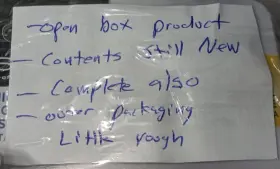 -open box product
- Contents still New
- Complete also
- outer packaging
Little rough